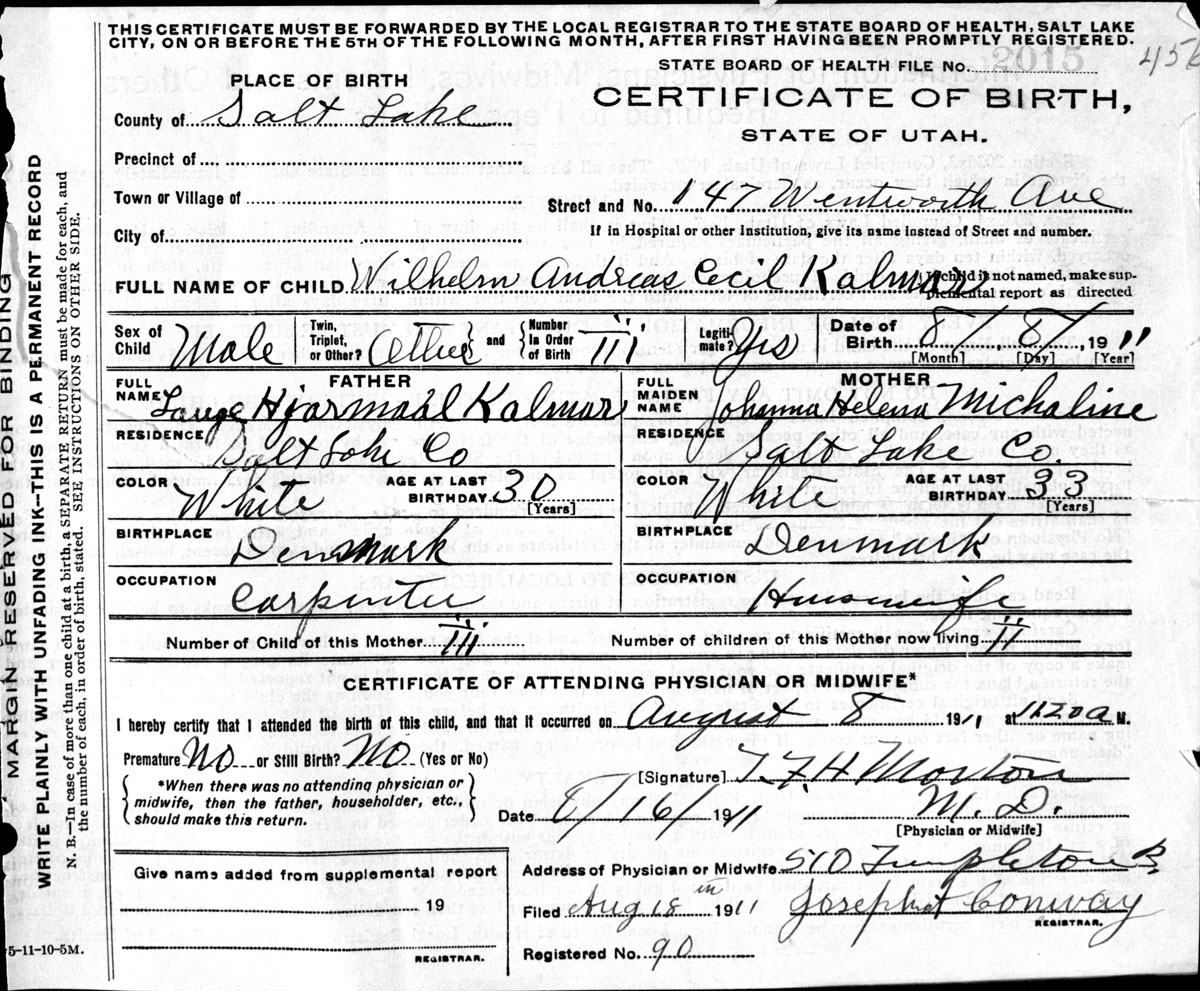 THIS CERTIFICATE MUST BE FORWARDED BY THE LOCAL REGISTRAR TO THE STATE BOARD OF HEALTH, SALT LAKE
CITY, ON OR BEFORE THE 5TH OF THE FOLLOWING MONTH, AFTER FIRST HAVING BEEN PROMPTLY REGISTERED.
STATE BOARD OF HEALTH FILE No. 2015
456
PLACE OF BIRTH
CERTIFICATE OF BIRTH,
STATE OF UTAH.
County of Salt Lake
Precinct of
Town or Village of
Street and No. 147 Wentworth Ave
City of
If in Hospital or other Institution, give its name instead of Street and number.
FULL NAME OF CHILD Wilhelm Andreas Cecil Kalmar
If child is not named, make supplemental report as directed
Sex of Child Male Twin, Triplet, or Other? Other and Number In Order of Birth III Legitimate? Yes Date of Birth 8/8/, 1911
[Month] [Day] [Year]
FATHER
MOTHER
FULL NAME Lauge Hjarmaal Kalmar
FULL MAIDEN NAME Johanna Helena Michaline
RESIDENCE Salt Lake Co
RESIDENCE Salt Lake Co.
COLOR White AGE AT LAST BIRTHDAY 30 [Years]
COLOR White AGE AT LAST BIRTHDAY 33 [Years]
BIRTHPLACE Denmark
BIRTHPLACE Denmark
OCCUPATION Carpenter
OCCUPATION Housewife
Number of Child of this Mother III
Number of children of this Mother now living II
CERTIFICATE OF ATTENDING PHYSICIAN OR MIDWIFE*
I hereby certify that I attended the birth of this child, and that it occurred on August 8 1911 at 1120 a M.
Premature No or Still Birth? No. (Yes or No)
*When there was no attending physician or
midwife, then the father, householder, etc.,
should make this return.
[Signature] T. F. H. Morton
Date 8/16/ 1911 M. D.
[Physician or Midwife]
Give name added from supplemental report
19
REGISTRAR.
Address of Physician or Midwife 510 Templeton B
Filed Aug 18 1911 Joseph Conway
REGISTRAR.
Registered No. 90
5-11-10-5M.
MARGIN RESERVED FOR BINDING
WRITE PLAINLY WITH UNFADING INK--THIS IS A PERMANENT RECORD
N. B.—In case of more than one child at a birth, a SEPARATE RETURN must be made for each, and
the number of each, in order of birth, stated. SEE INSTRUCTIONS ON OTHER SIDE.